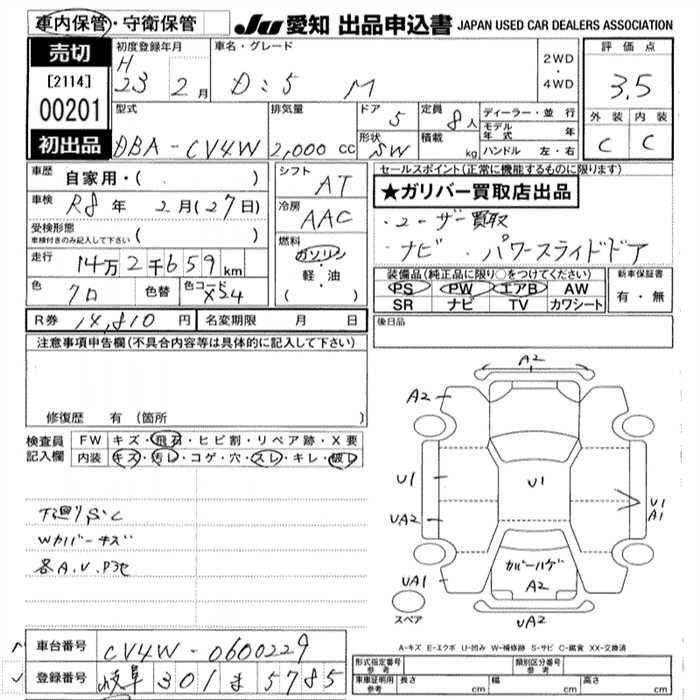 車内保管・守衛保管
JU 愛知 出品申込書 JAPAN USED CAR DEALERS ASSOCIATION
売切
[2114]
00201
初出品
初度登録年月
H
23 2月
車名・グレード
D:5 M
2WD
・
4WD
評価点
3.5
外装 内装
C C
型式
DBA-CV4W
排気量
2,000 cc
ドア
5
形状
SW
定員
8人
積載
kg
ディーラー・並行
モデル年式 年
ハンドル 左・右
車歴
自家用・( )
車検
R8年 2月(27日)
受検形態
車検付きのみ記入して下さい ( )
走行
14万2千659km
色
クロ
色替
色コード
X54
シフト
AT
冷房
AAC
燃料
ガソリン
・
軽・油
( )
セールスポイント(正常に機能するものに限ります)
★ガリバー買取店出品
・ユーザー買取
・ナビ ・パワースライドドア
装備品(純正品に限り○をつけてください)
PS PW エアB AW
SR ナビ TV カワシート
新車保証書
有・無
R券 14,810円
名変期限 月 日
後日品
注意事項申告欄(不具合内容等は具体的に記入して下さい)
修復歴 有 (箇所 )
検査員
記入欄
FW キズ・飛石・ヒビ割・リペア跡・X要
内装 キズ・汚レ・コゲ・穴・スレ・キレ・破レ
下廻りS・C
Wカバーキズ
各A.U.P3セ
A2
A2
U1
U1
UA2
U1
A1
カバーハゲ
A2
UA1
UA2
スペア
A-キズ E-エクボ U-凹み W-補修跡 S-サビ C-腐食 XX-交換済
車台番号
CV4W-0600229
登録番号
岐阜 301 ま 5785
形式指定番号
参考
類別区分番号
参考
車庫証明用
参考
長さ cm 幅 cm 高さ cm